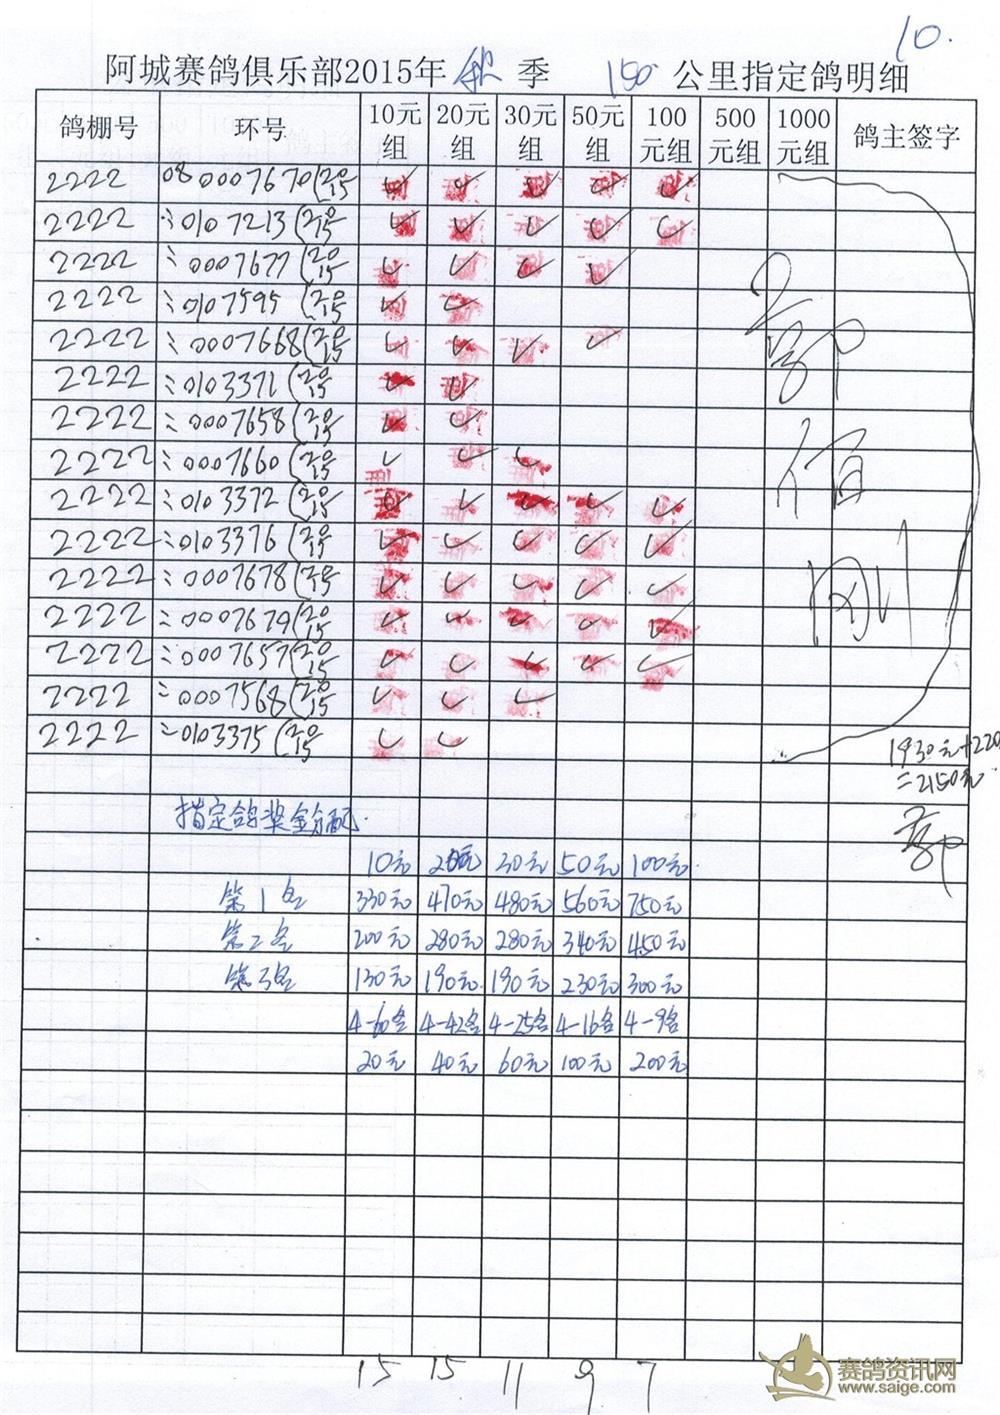 10.
阿城赛鸽俱乐部2015年秋季 150 公里指定鸽明细
鸽棚号 环号 10元组 20元组 30元组 50元组 100元组 500元组 1000元组 鸽主签字
2222 08 0007670(2015 ✓ ✓ ✓ ✓ ✓
2222 〃 0107213(2015 ✓ ✓ ✓ ✓ ✓
2222 〃 0007677(2015 ✓ ✓ ✓ ✓
2222 〃 0107595(2015 ✓ ✓
2222 〃 0007668(2015 ✓ ✓ ✓ ✓
2222 〃 0103371(2015 ✓ ✓
2222 〃 0007658(2015 ✓ ✓
2222 〃 0007660(2015 ✓ ✓ ✓
2222 〃 0103372(2015 ✓ ✓ ✓ ✓ ✓
2222 〃 0103376(2015 ✓ ✓ ✓ ✓ ✓
2222 〃 0007678(2015 ✓ ✓ ✓ ✓ ✓
2222 〃 0007679(2015 ✓ ✓ ✓ ✓ ✓
2222 〃 0007657(2015 ✓ ✓ ✓ ✓ ✓
2222 〃 0007568(2015 ✓ ✓ ✓
2222 〃 0103375(2015 ✓ ✓
1930元+220
=2150元
指定鸽奖金分配.
10元 20元 30元 50元 100元.
第1名 330元 470元 480元 560元 750元
第2名 200元 280元 280元 340元 450元
第3名 130元 190元 190元 230元 300元
4-60名 4-42名 4-25名 4-16名 4-9名
20元 40元 60元 100元 200元
15 15 11 9 7
赛鸽资讯网
www.saige.com